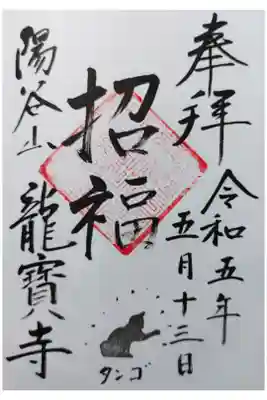 奉拝
令和五年
五月十三日
招福
陽谷山
龍寶寺
タンゴ